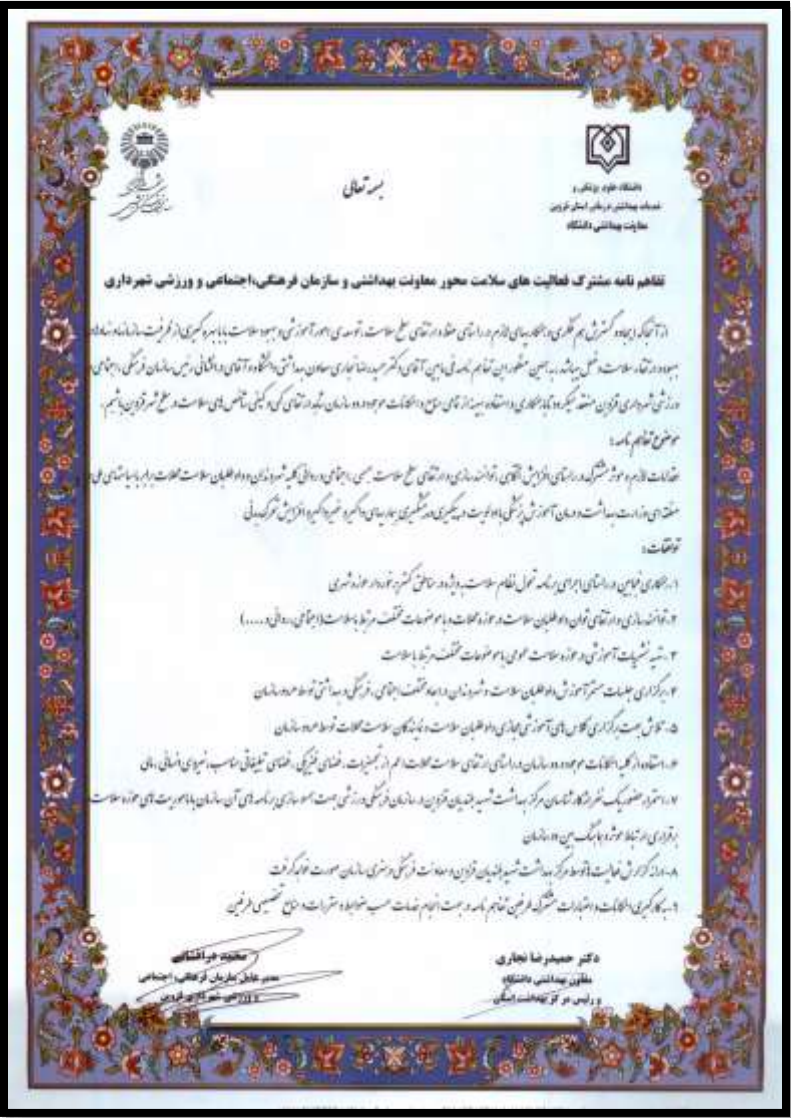 بسمه تعالی
دانشگاه علوم پزشکی و
خدمات بهداشتی درمانی استان قزوین
معاونت بهداشتی دانشگاه
تفاهم نامه مشترک فعالیت های سلامت محور معاونت بهداشتی و سازمان فرهنگی،اجتماعی و ورزشی شهرداری
از آنجا که ایجاد و گسترش هم فکری و همکاریهای لازم در راستای حفظ و ارتقای سطح سلامت، توسعه ی امور آموزشی و بهبود سلامت با بهره گیری از ظرفیت سازمانها و نهادهای
بهبود و ارتقاء سلامت و عقل میباشد، به همین منظور این تفاهم نامه فی مابین آقای دکتر حمیدرضا نجاری معاون بهداشتی دانشگاه و آقای درافشانی رئیس سازمان فرهنگی، اجتماعی و
ورزشی شهرداری قزوین منعقد میگردد تا با همکاری و استفاده بهینه از تمامی منابع و امکانات موجود دو سازمان شاهد ارتقای کمی و کیفی شاخص های سلامت در سطح شهر قزوین باشیم.
موضوع تفاهم نامه :
اقدامات لازم و موثر مشترک در راستای افزایش آگاهی، توانمند سازی و ارتقای سطح سلامت جسمی، اجتماعی و روانی کلیه شهروندان و داوطلبان سلامت محلات برابر با سیاستهای ملی و
منطقه ای وزارت بهداشت و درمان آموزش پزشکی با اولویت در پیگیری و پیشگیری بیماریهای واگیر و غیر واگیر و افزایش تحرک بدنی
توافقات :
۱- همکاری فیمابین در راستای اجرای برنامه تحول نظام سلامت به ویژه در مناطق کمتر برخوردار حوزه شهری
۲- توانمند سازی و ارتقای توان داوطلبان سلامت در حوزه محلات و با موضوعات مختلف مرتبط با سلامت (اجتماعی، روانی و .....)
۳- تهیه نشریات آموزشی در حوزه سلامت عمومی با موضوعات مختلف مرتبط با سلامت
۴- برگزاری جلسات مستمر آموزش داوطلبان سلامت و شهروندان در ابعاد مختلف اجتماعی، فرهنگی و بهداشتی توسط هر دو سازمان
۵- تلاش جهت برگزاری کلاس های آموزشی مجازی داوطلبان سلامت و نمایندگان سلامت محلات توسط هر دو سازمان
۶- استفاده از کلیه امکانات موجود دو سازمان در راستای ارتقای سلامت محلات اعم از تجهیزات، فضای فیزیکی، فضای تبلیغاتی مناسب، نیروی انسانی، مالی
۷- استمرار حضور یک نفر از کارشناسان مرکز بهداشت شهید بلندیان قزوین در سازمان فرهنگی ورزشی جهت همسو سازی برنامه های آن سازمان با ماموریت های حوزه سلامت و
برقراری ارتباط موثر و هماهنگ بین دو سازمان
۸- ارائه گزارش فعالیت ها توسط مرکز بهداشت شهید بلندیان قزوین و معاونت فرهنگی و هنری سازمان صورت خواهد گرفت
۹- به کارگیری امکانات و اعتبارات مشترک طرفین تفاهم نامه در جهت انجام خدمات حسب ضوابط و مقررات و منابع تخصیصی طرفین
دکتر حمیدرضا نجاری
معاون بهداشتی دانشگاه
و رئیس مرکز بهداشت استان
محمد درافشانی
مدیر عامل سازمان فرهنگی، اجتماعی
و ورزشی شهرداری قزوین